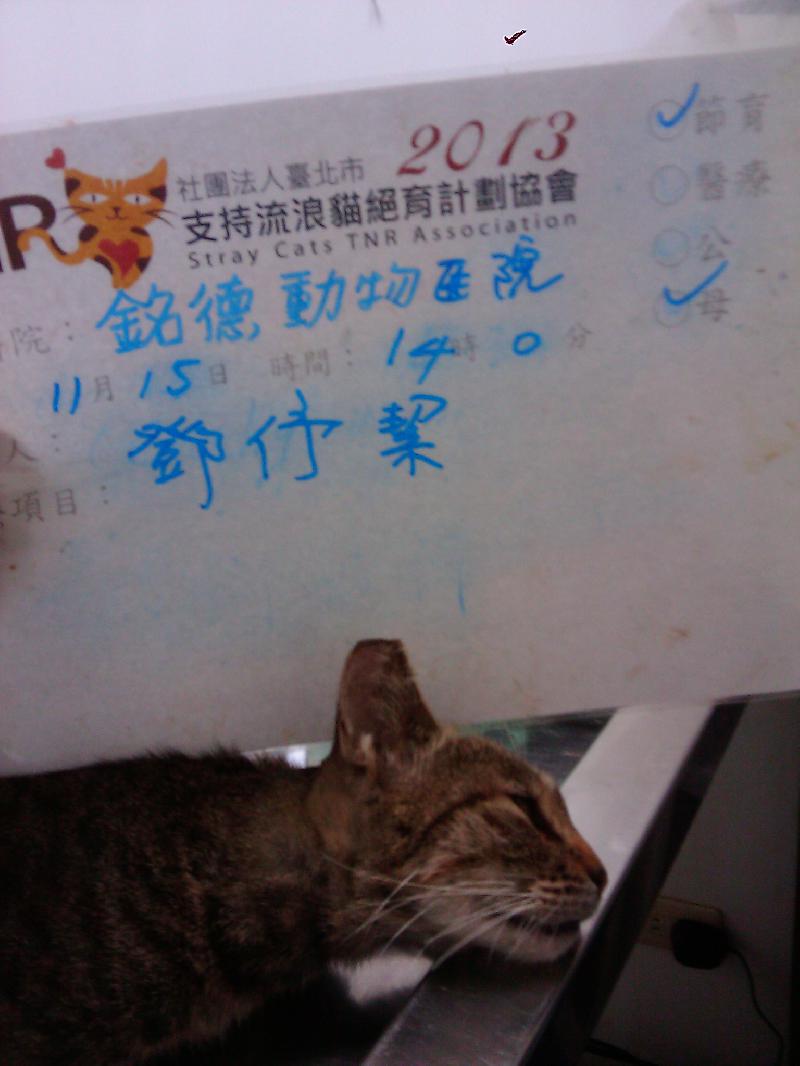 2013
社團法人臺北市
支持流浪貓絕育計劃協會
Stray Cats TNR Association
節育
醫療
公
母
院：銘德動物医院
11月15日 時間：14時0分
人：鄧伃絜
項目：